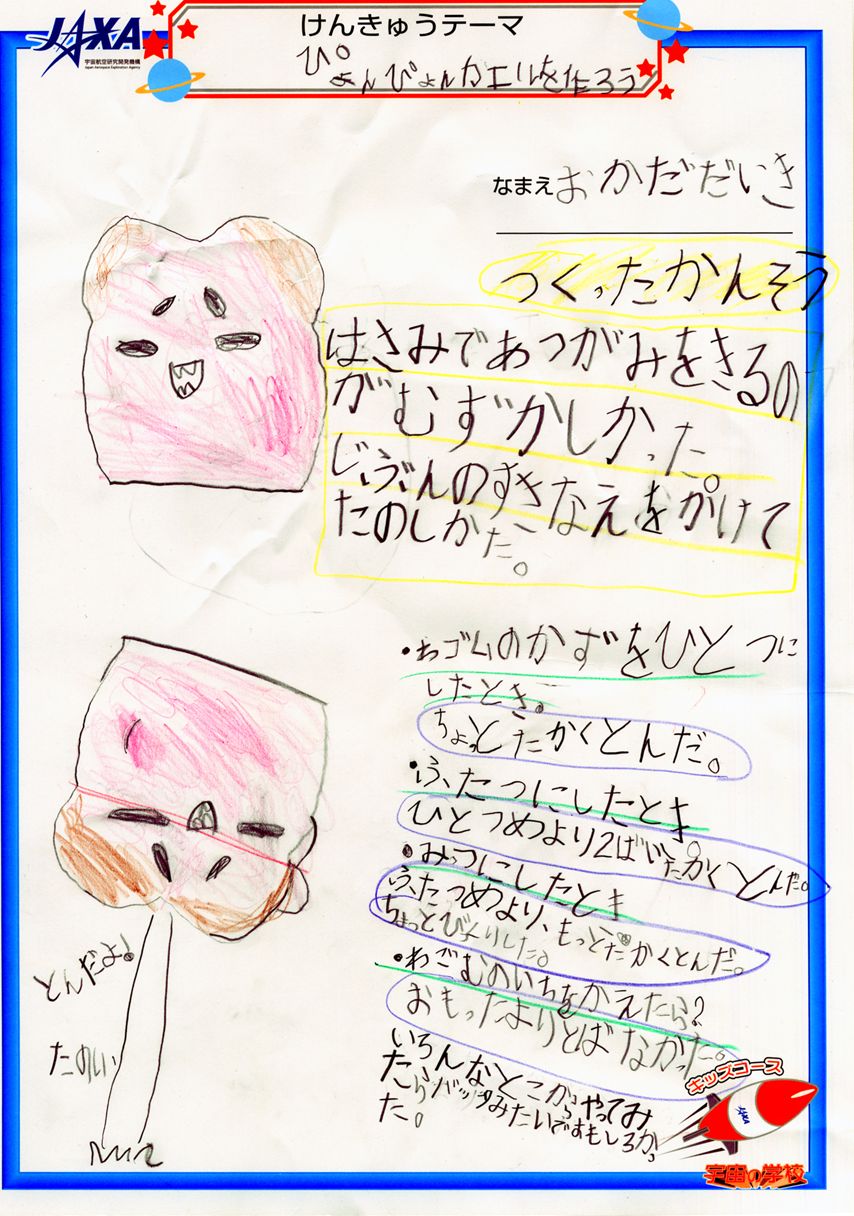 JAXA
宇宙航空研究開発機構
Japan Aerospace Exploration Agency
けんきゅうテーマ
ぴょんぴょんカエルを作ろう
なまえ おかだだいき
つくったかんそう
はさみであつがみをきるの
がむずかしかった。
じぶんのすきなえをかけて
たのしかた。
・わゴムのかずをひとつに
したとき。
ちょっとたかくとんだ。
・ふたつにしたとき
ひとつめより2ばいたかくとんだ。
・みっつにしたとき
ふたつめより、もっとたかくとんだ。
ちょっとびくりした。
・わごむのいちをかえたら?
おもったよりとばなかった。
いろんなとこからやってみ
たらバッタみたいでおもしろかっ
た。
とんだよ!
たのしい
キッズコース
JAXA
宇宙の学校